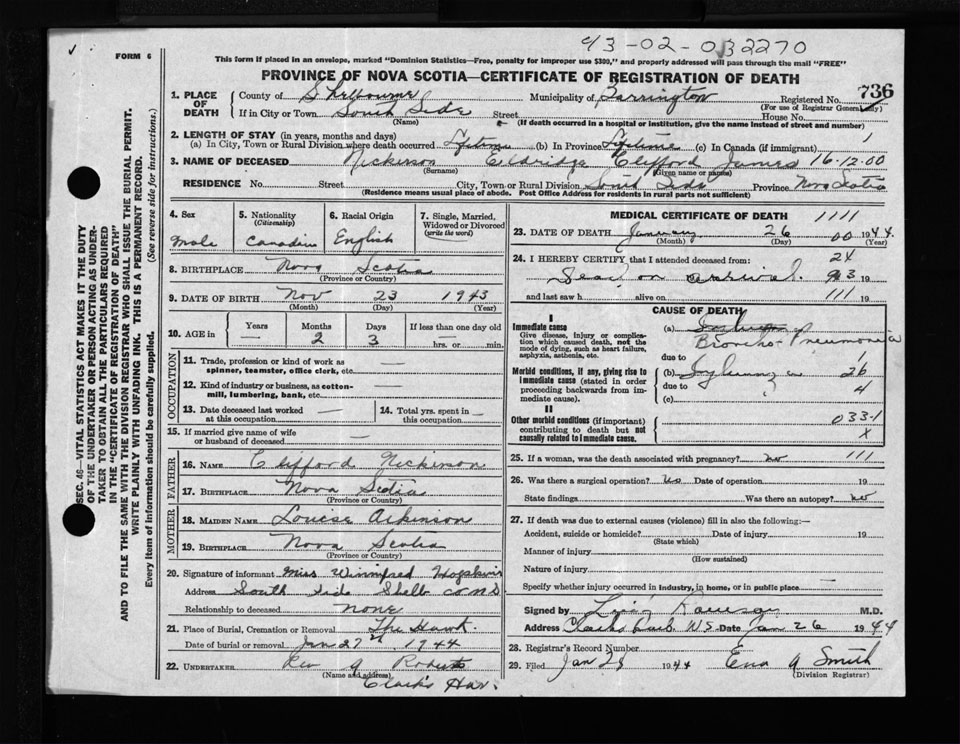 43-02-032270
FORM 6
This form if placed in an envelope, marked "Dominion Statistics—Free, penalty for improper use $300," and properly addressed will pass through the mail "FREE"
PROVINCE OF NOVA SCOTIA—CERTIFICATE OF REGISTRATION OF DEATH
736
SEC. 46—VITAL STATISTICS ACT MAKES IT THE DUTY
OF THE UNDERTAKER OR PERSON ACTING AS UNDER-
TAKER TO OBTAIN ALL THE PARTICULARS REQUIRED
IN THE "CERTIFICATE OF REGISTRATION OF DEATH"
AND TO FILE THE SAME WITH THE DIVISION REGISTRAR WHO SHALL ISSUE THE BURIAL PERMIT.
WRITE PLAINLY WITH UNFADING INK. THIS IS A PERMANENT RECORD.
Every item of information should be carefully supplied. (See reverse side for instructions.)
1. PLACE OF DEATH
County of Shelburne Municipality of Barrington Registered No.
(For use of Registrar General only)
If in City or Town South Side Street House No.
(Name) (If death occurred in a hospital or institution, give the name instead of street and number)
2. LENGTH OF STAY (in years, months and days) 1
(a) In City, Town or Rural Division where death occurred Lifetime (b) In Province Lifetime (c) In Canada (if immigrant)
3. NAME OF DECEASED Nickerson Eldridge Clifford James 16-12-00
(Surname) (Given name or names)
RESIDENCE No. Street City, Town or Rural Division South Side Province Nova Scotia
(Residence means usual place of abode. Post Office Address for residents in rural parts not sufficient)
4. Sex
male
5. Nationality
(Citizenship)
Canadian
6. Racial Origin
English
7. Single, Married,
Widowed or Divorced
(write the word)
8. BIRTHPLACE Nova Scotia
(Province or Country)
9. DATE OF BIRTH Nov 23 1943
(Month) (Day) (Year)
10. AGE in
Years Months Days If less than one day old
— 2 3 hrs. or min.
OCCUPATION
11. Trade, profession or kind of work as
spinner, teamster, office clerk, etc. —
12. Kind of industry or business, as cotton-
mill, lumbering, bank, etc. —
13. Date deceased last worked
at this occupation —
14. Total yrs. spent in
this occupation —
15. If married give name of wife
or husband of deceased —
FATHER
16. NAME Clifford Nickerson
17. BIRTHPLACE Nova Scotia
(Province or Country)
MOTHER
18. MAIDEN NAME Louise Atkinson
19. BIRTHPLACE Nova Scotia
(Province or Country)
20. Signature of informant Miss Winnifred Hopkins
Address South Side Shelb Co NS
Relationship to deceased none
21. Place of Burial, Cremation or Removal The Hawk
Date of burial or removal Jan 27th 1944
22. UNDERTAKER Rev A Roberts
(Name and address)
Clark's Har.
MEDICAL CERTIFICATE OF DEATH 1111
23. DATE OF DEATH January 26 00 1944
(Month) (Day) (Year)
24. I HEREBY CERTIFY that I attended deceased from: 24
Dead on arrival. 19
and last saw h alive on 111 19
CAUSE OF DEATH
I
Immediate cause
Give disease, injury or complica-
tion which caused death, not the
mode of dying, such as heart failure,
asphyxia, asthenia, etc.
(a)
Broncho-Pneumonia
due to 1
Morbid conditions, if any, giving rise to
immediate cause (stated in order
proceeding backwards from im-
mediate cause).
(b) Influenza 26
due to 4
(c)
II
Other morbid conditions (if important)
contributing to death but not
causally related to immediate cause.
033-1
X
25. If a woman, was the death associated with pregnancy? no 111
26. Was there a surgical operation? No Date of operation 19
State findings Was there an autopsy? no
27. If death was due to external causes (violence) fill in also the following:—
Accident, suicide or homicide? Date of injury 19
(State which)
Manner of injury
(How sustained)
Nature of injury
Specify whether injury occurred in industry, in home, or in public place —
Signed by M.D.
Address Clarks Date Jan 26 1944
28. Registrar's Record Number
29. Filed Jan 28 1944 Ena A Smith
(Division Registrar)